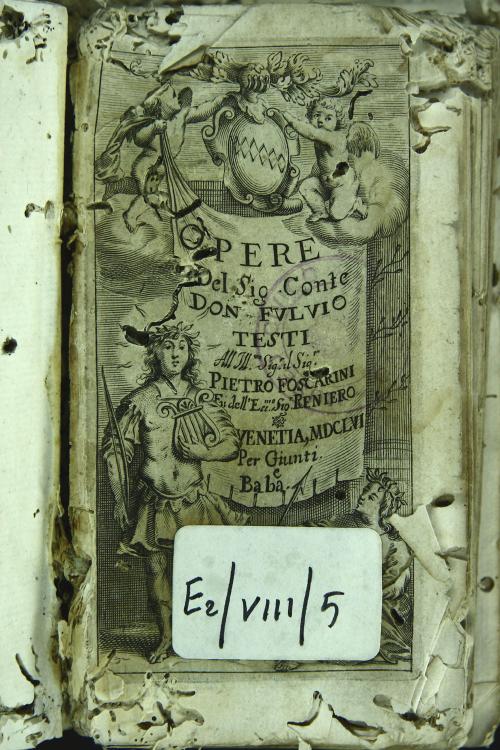 OPERE
Del Sig. Conte
DON FVLVIO
TESTI
All Ill.mo Sig. il Sig.r
PIETRO FOSCARINI
F. dell' Ecc.mo Sig.r RENIERO
VENETIA, MDCLVI
Per Giunti.
e
Baba.
E2/VIII/5